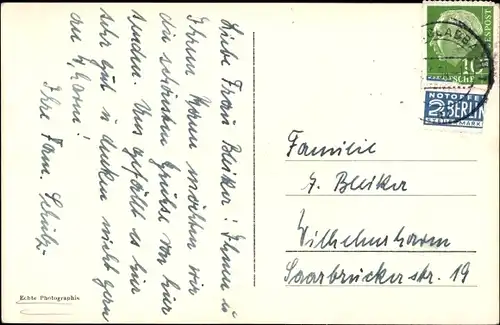 Liebe Frau Bleiker! Ihnen u
Ihrem Mann möchten wir
die schönsten Grüße von hier
senden. Uns gefällt es hier
sehr gut u denken nicht gern
an W,haven!
Ihre Fam. Schütz
Echte Photographie
BUNDESPOST
10
NOTOPFER
2 BERLIN
STEUERMARKE
Familie
J. Bleiker
Wilhelmshaven
Saarbrücker str. 19